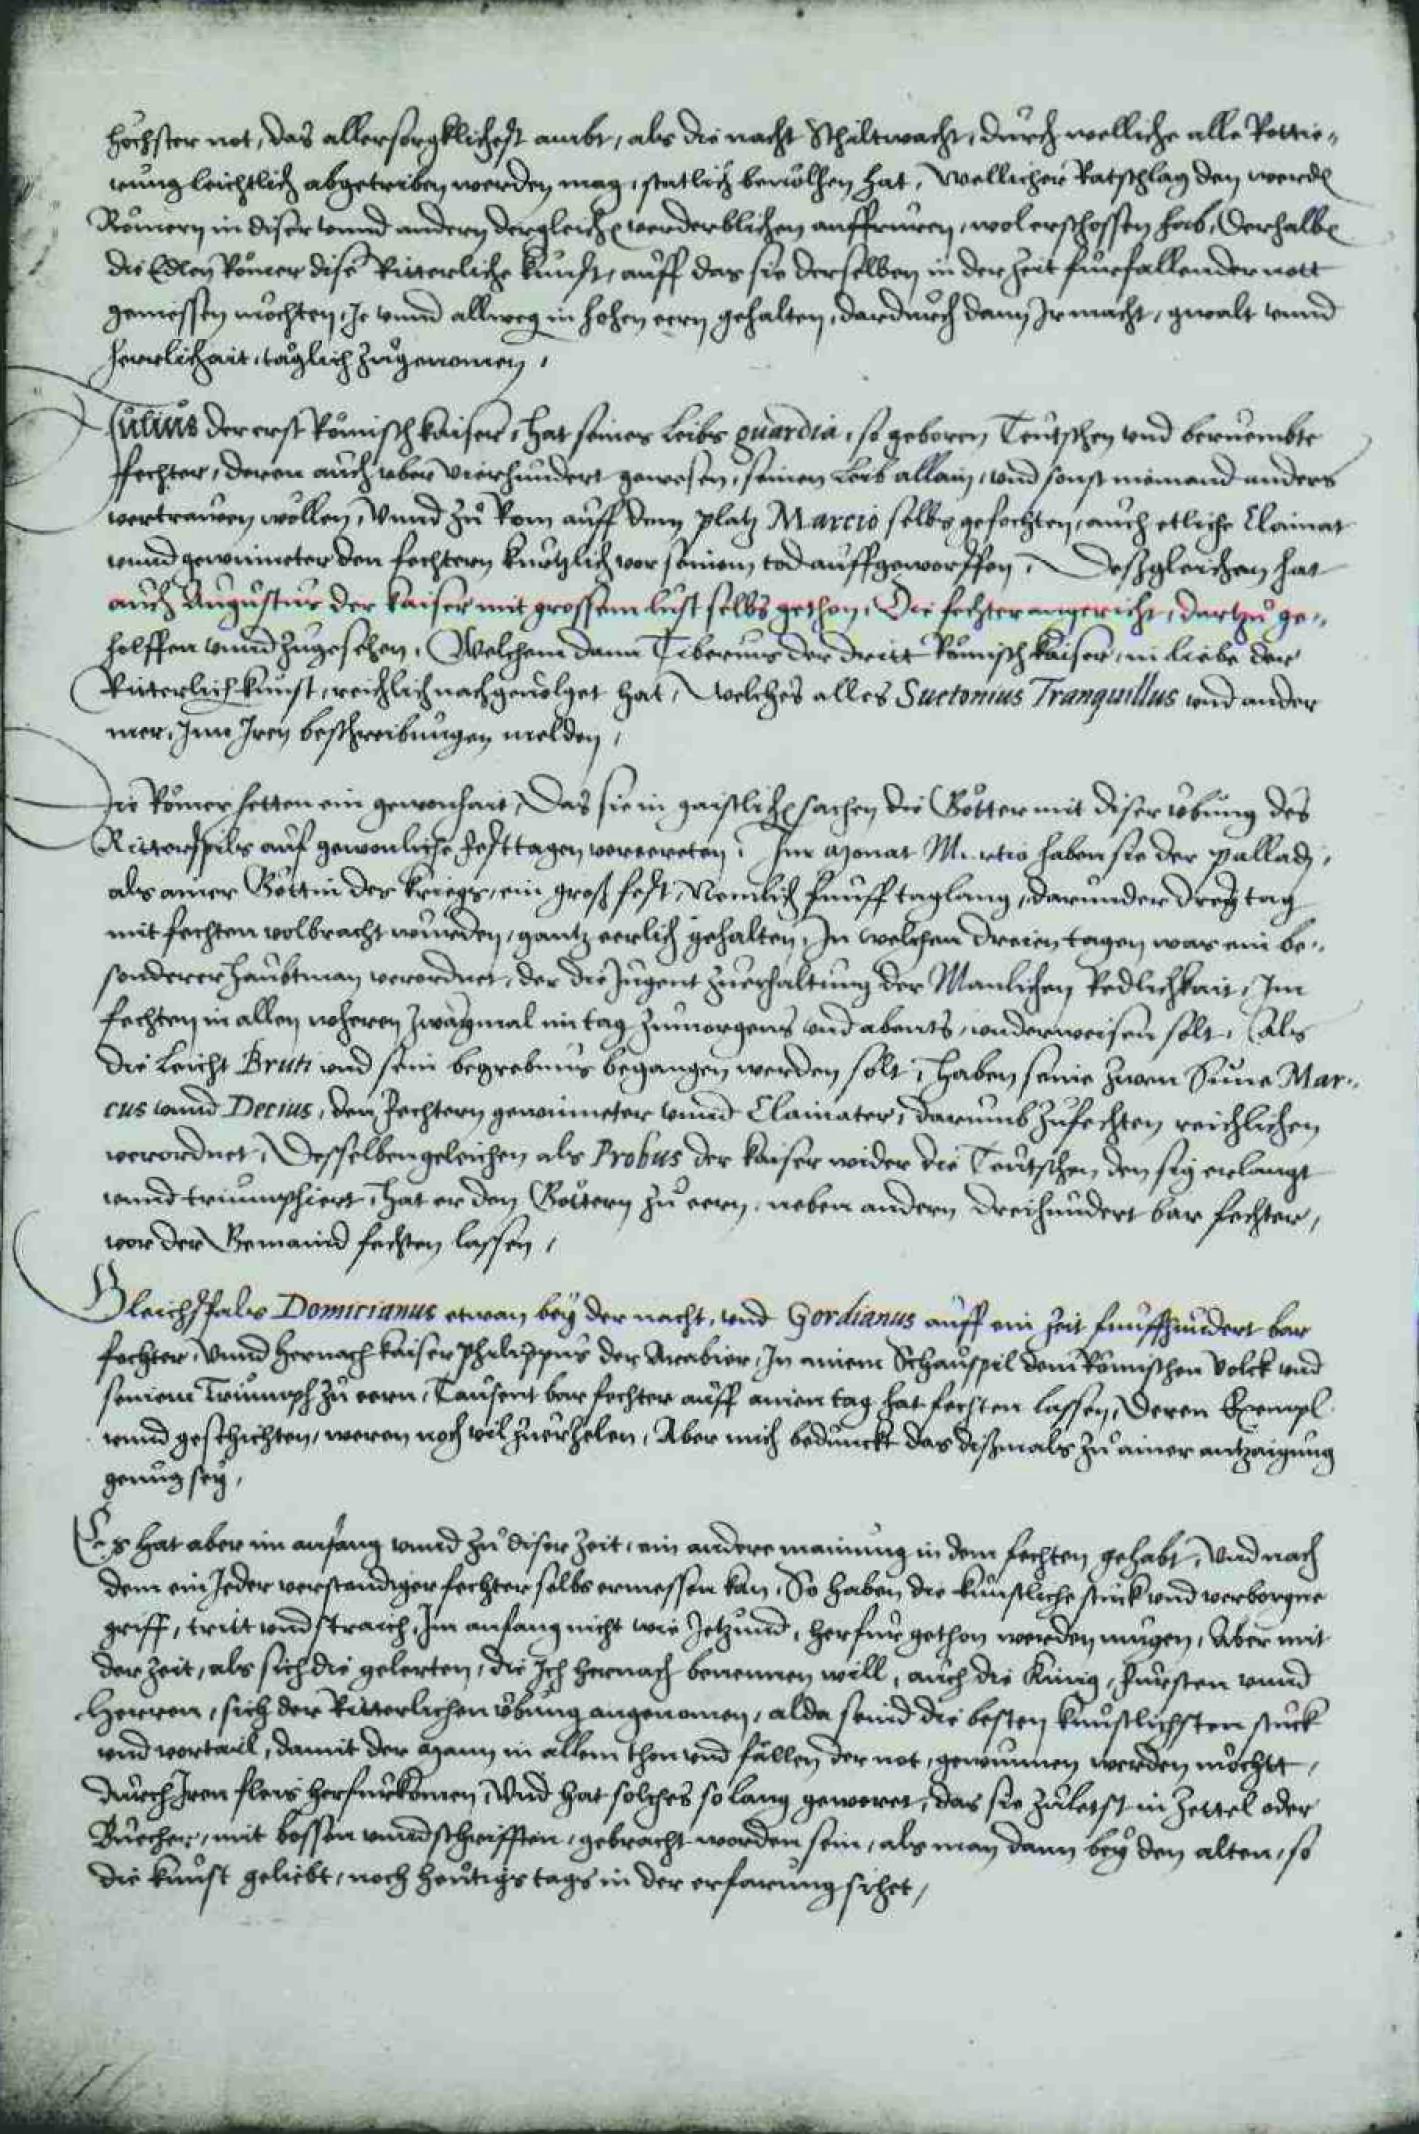 höchster not, das allersorgklichest ambt, als die nacht Schiltwacht, durch welliche alle Rottie-
rung leichtlich abgetriben werden mag, statlich bevolhen hat, Wellicher Ratschlag den werden
Römern in diser unnd andern dergleichen verderblichen auffruren, wol erschossen hab, Derhalben
die Edlen Römer dise Ritterliche kunst, auff das sie derselben in der zeit furfallender nott
geniessen möchten, Je unnd allweg in hohen eern gehalten, dardurch dann Ir macht, gwalt unnd
herrlichait, täglich zugenomen,
Julius der erst Römisch kaiser, hat seines Leibs guardia, so geboren Teutschen und beruembte
fechter, deren auch uber vierhundert gewesen, seinen Leib allain, und sonst niemand anders
vertrauen wöllen, Unnd zu Rom auff dem platz Marcio selbs gefochten, auch etliche Clainat
unnd gewinneter den fechtern kurtzlich vor seinem tod auffgeworffen, Deßgleichen hat
auch Augustus der kaiser mit grossem lust selbs gethon, Die fechter angericht, dartzu ge-
holffen unnd zugesehen, Welchem dann Tiberius der dritt Römisch kaiser, in liebe der
Ritterlich kunst, reichlich nachgevolget hat, Welches alles Suetonius Tranquillus und ander
mer, Inn Iren beschreibungen melden,
Die Römer hetten ein gewonhait, Das sie in gaistlichen sachen die Götter mit diser übung des
Ritterspils auf gewonliche Festtagen vereereten, Im Monat Martio haben sie der Palladj,
als ainer Göttin des kriegs, ein groß fest, Nemlich funff taglang, darunder drey tag
mit fechten volbracht wurden, gantz eerlich gehalten, In welchen dreien tagen was ein be-
sonderer haubtman verordnet, der die Jugent zu erhaltung der Manlichen Redlichkait, Im
fechten in allen wheren zwaymal im tag zumorgens und abents, underweisen solt, Als
die Leicht Bruti und sein begrebnus begangen werden solt, haben seine zwen Süne Mar-
cus unnd Decius, den Fechtern gewinneter unnd Clainater, darumb zufechten reichlichen
verordnet, Desselbengeleichen als Probus der kaiser wider die Teutschen den sig erlangt
unnd triumphiert, hat er den Göttern zu eern, neben andern dreihundert bar fechter,
vor der Gemaind fechten lassen,
Gleichsfals Domitianus etwan bey der nacht, und Gordianus auff ein zeit funffhundert bar
fechter, Unnd hernach kaiser Philippus der Arabier, In ainem Schauspil dem Römischen Volck und
seinem Triumph zu eern, Tausent bar fechter auff ainen tag hat fechten lassen, Deren Exempl
unnd geschichten, weren noch vil zuerzelen, Aber mich bedunckt das dißmals zu ainer antzaigung
genug sey,
Es hat aber im anfang unnd zu diser zeit, ein andere mainung in dem fechten gehabt, Und nach
dem ein Jeder verstendiger fechter selbs ermessen kan, So haben die kunstliche stuck und verborgne
griff, tritt und straich, Im anfang nicht wie Jetzund, herfur gethon werden mugen, Aber mit
der zeit, als sich die gelerten, die Ich hernach benennen will, auch die Künig, Fursten unnd
Herren, sich der Ritterlichen übung angenomen, alda seind die besten kunstlichsten stuck
und vortail, damit der Mann in allem thon und fällen der not, gewinnen werden möcht,
durch Iren fleis herfurkomen, Und hat solches so lang geweret, das sie zuletst in Zettel oder
Buecher, mit bossen unnd schrifften, gebracht worden sein, als man dann bey den alten, so
die kunst geliebt, noch heutigs tags in der erfarung sihet,